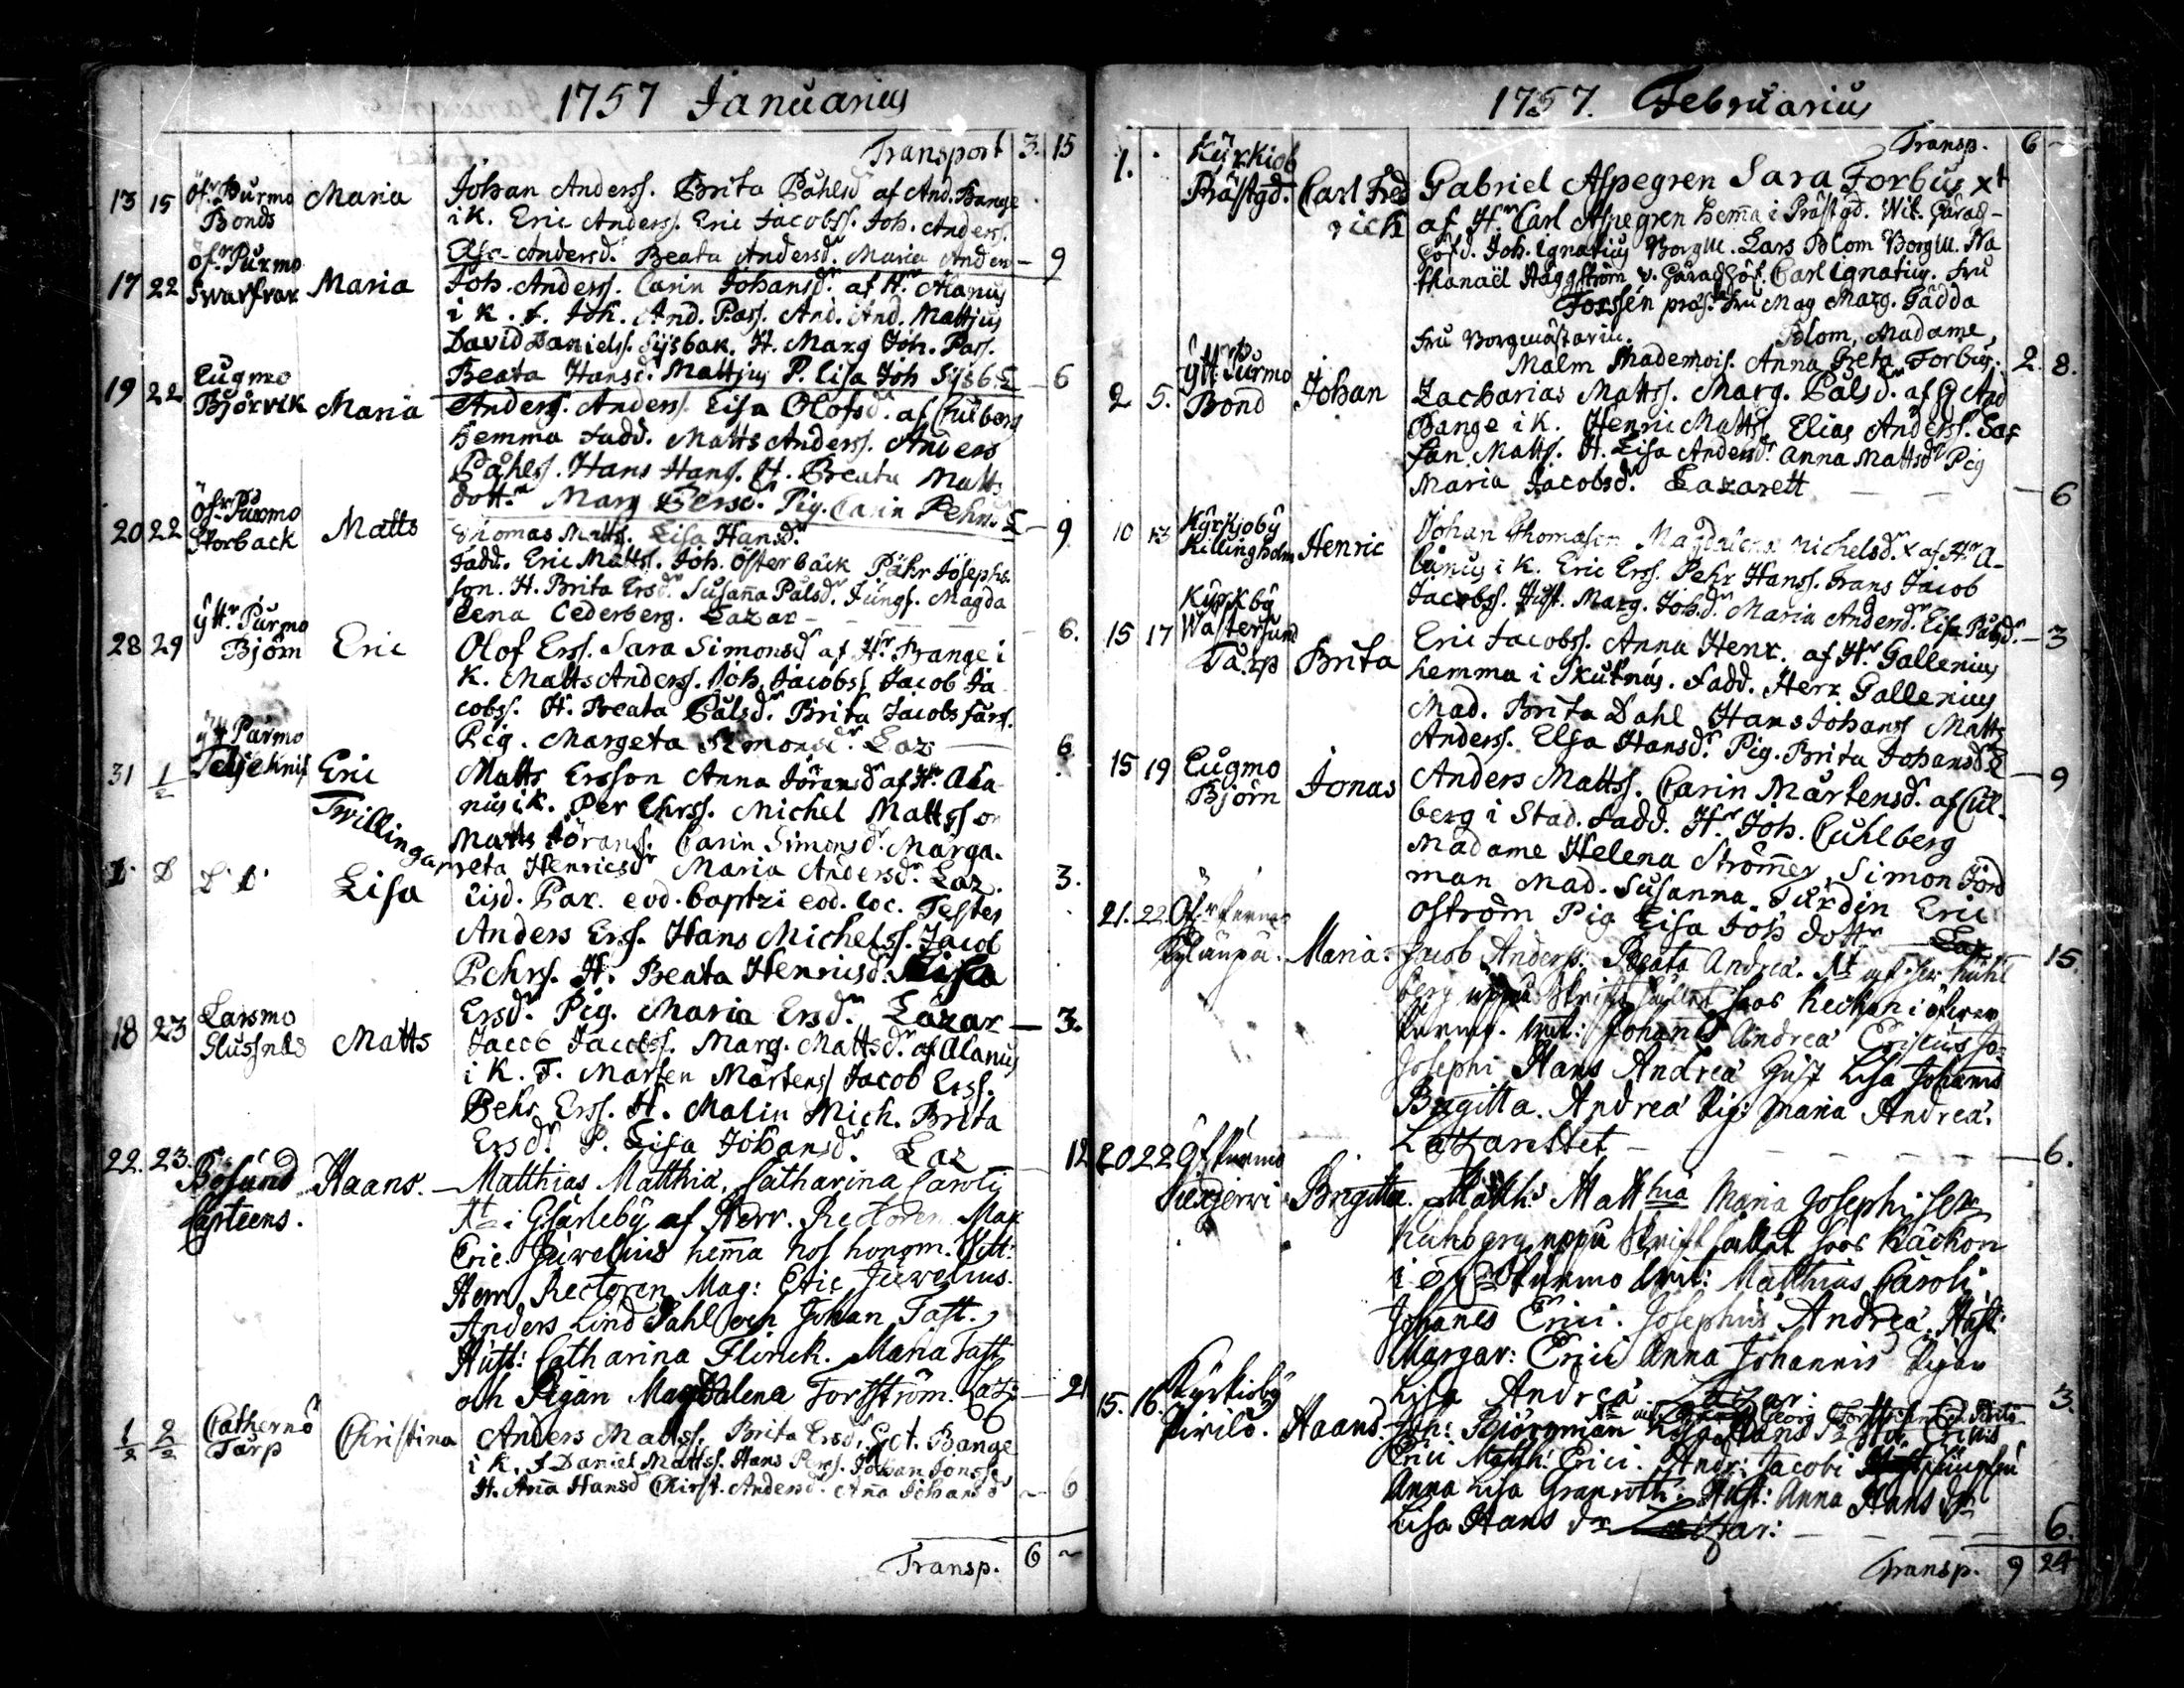 1757 Januarius
Transport 3. 15
13 15 Öfr. Purmo Maria Johan Anderss. Brita Påhlsdr af And. Bange
Bonds i K. Eric Anderss. Eric Jacobss. Joh. Anderss.
Öfr. Purmo Elsa Andersdr. Beata Andersdr. Maria Anders — 9
17 22 Swarfvar Maria Joh. Anderss. Carin Johansdr. af Hr. Alanus
i K. f. Joh. And. Pass. And. And. Mattjus
David Daniels. Sysbak. H. Marg Joh. Pass.
Eugmo Beata Hansdr. Mattjus P. Lisa Joh Sysb. L — 6
19 22 Björvik Maria Anders. Anderss. Lisa Olofsdr. af Culberg
hemma Fadd. Matts Anderss. Anders
Påhlss. Hans Hans. H. Breata Matts
Öfr. Purmo dottr. Marg Persdr. Pig. Carin Pehrs. L — 9
20 22 Storback Matts Thomas Matts. Lisa Hansdr.
Fadd. Eric Mattss. Joh. Österbäck Pähr Josephs-
son. H. Brita Ersdr. Susanna Pålsdr. Jungf. Magda
ÿttr. Purmo lena Cederberg. Lazar — 6.
28 29 Björn Eric Olof Erss. Sara Simonsdr af Hr. Bange i
K. Matts Anderss. Joh. Jacobss Jacob Ja
cobss. H. Beata Pålsdr. Brita Jacobs
ÿtt Purmo Pig. Margeta Simonsdr. Laz — 6
31 1/2 Eric Matts Ersson Anna Jöransdr af Hr. Ala
Twillingar nus i K. Per Ehrss. Michel Mattsson
Matts Jörans. Carin Simonsdr. Marga-
reta Henricsdr Maria Andersdr. Laz. 3.
D. D D. D. Lisa Eisd. Par. eod. baptzi eod. loc. Testes
Anders Erss. Hans Michelss. Jacob
Pehrs. H. Beata Henricsdr. Lisa
Larsmo Ersdr. Pig. Maria Ersdr. Lazar — 3.
18 23 Slussnäs Matts Jacob Jacobss. Marg. Mattsdr. af Alanus
i K. F. Marten Mårtenss Jacob Erss.
Pehr Erss. H. Malin Mich. Brita
Ersdr. P. Lisa Johansdr. Laz — 12
22. 23. Bosund Haans. — Matthias Matthiæ, Catharina Caroli
i Gjärleby af Herr. Rectoren Mag
Eric Juvelius hemma hos honom. Witt:
Herr Rectoren Mag: Eric Juvelius.
Anders Lind Dahl och Johan Fast.
Hust: Catharina Flinck. Maria Fast
och Pigan Magdalena Forsström. Laz: — 21
1/2 2/2 Catherno Christina Anders Matss. Brita Ersdr. Bange
Tarp i K. F Daniel Mattss. Hans Perss. Johan Jönsse
H. Anna Hansd Christ. Andersdr. Anna Johansd — 6
Transp. 6 ~
1757. Februarius
Transp. 6 –
1. Kyrkiob
Prästgd. Carl Fred Gabriel Aspegren Sara Forbus xt
rich af Hr Carl Aspegren hemma i Prästgd. Wit. härads-
höfd. Joh. Ignatius Borgm. Lars Blom Borgm. Na
thanaël Häggström v. häradshöf. Carl Ignatius. Fru
Forssén præs. Fru Mag Marg. Gädda
Fru Borgmästarin. Blom, Madame
ÿttr. Purmo Malm Mademois. Anna Greta Forbus. 2 8.
2 5. Bond Johan Zacharias Mattss. Marg. Pålsdr. af H And
Bange i K. Henric Matts. Elias Anderss. Saf
fan. Matts. H. Lisa Andersdr. Anna Mattsdr Pig
Maria Jacobsdr. Lazarett — 6
10 13 Kyrkjoby Henric Johan Thomason Magdalena Michelsdr. x af Hr A-
Killingholm lanus i K. Eric Erss. Pehr Hanss. Frans Jacob
Kyrkby Jacobss. Hust. Marg. Joh.dr. Maria Andersdr. Lisa Pålsdr. — 3
15 17 Wästersund Eric Jacobss. Anna Henr. af Hr. Gallenius
Tarp Brita hemma i Skutnäs. Fadd. Herr Gallenius
Mad. Brita Dahl Hans Johans Matts
Anderss. Elsa Hansdr. Pig. Brita Johansdr L — 9
15 19 Eugmo Jonas Anders Mattss. Carin Mårtensdr. af Cul-
Björn berg i Stad. Fadd. Hr. Joh. Cuhlberg
Madame Helena Strömer, Simon Jord
man Mad. Susanna Turdin Eric
oström Pig Lisa Joh dottr — Laz 15
21. 22. Öfr Purmo Maria. Jacob Anderss. Beata Andreæ. af Her Kuhl
berg uppå Skrift hos Keckon i öfwer
Purmo. Wit: Johan Andreæ Ericus Jo-
Josephi Hans Andreæ Hust Lisa Johannis
Brigitta. Andreæ Pig: Maria Andreæ.
Latzarettet — 6.
20 22 Öf Purmo Brigitta. Matth: Matthiæ Maria Josephi
Kuhlberg uppå Skrift hos Käckon
i öfr Purmo Wit: Matthias Caroli
Johanes Erici. Josephus Andreæ Hust:
Margar: Erici Anna Johannis Pigan
Lisa Andreæ Lazar: 3.
15. 16. Kyrkioby Haans. Joh: Björgman Lisa Hans
Erici Matth: Erici. Andr: Jacobi
Anna Lisa Granroth: Hust: Anna Hans dr
Lisa Hans dr Latzar: — 6.
Transp. 9 24